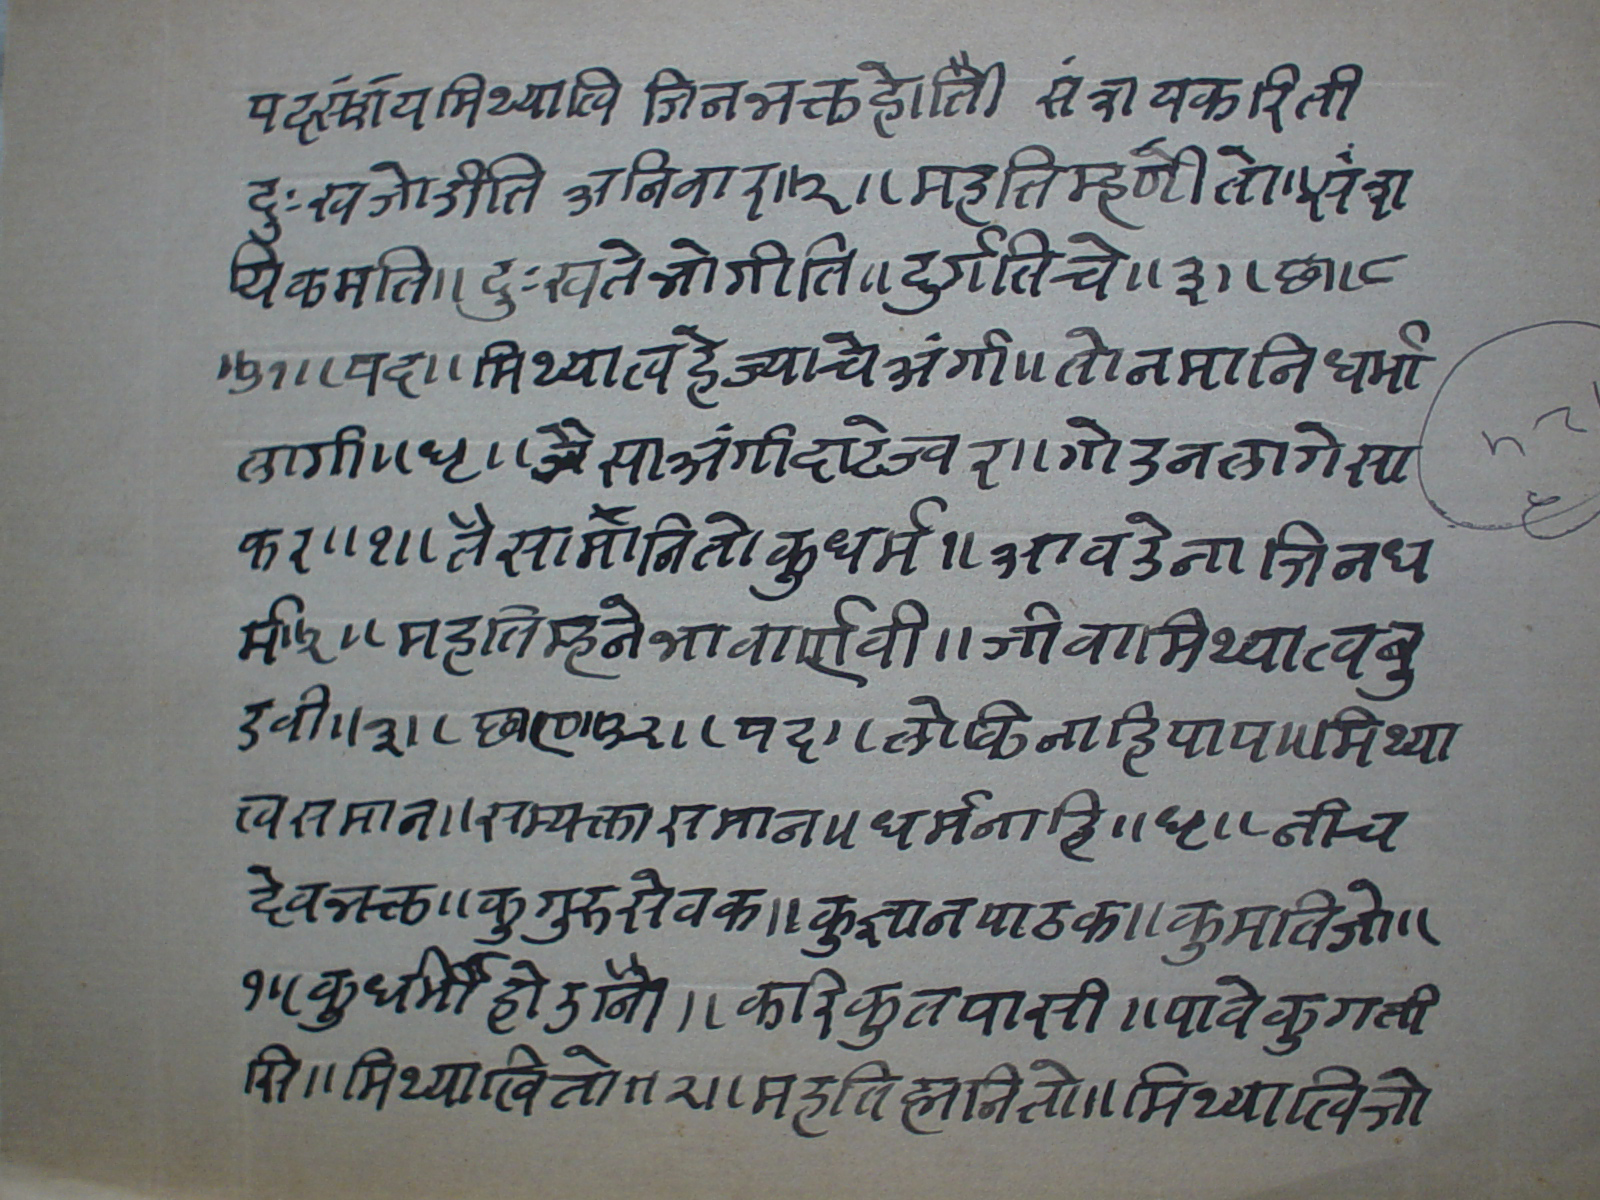 मिथ्यात्वि जिनभक्त होति संशय करिती
दुःख जोडीति अनिवार॥२॥ महति म्हणे तो॥ संश
यिकमति॥ दुःख ते भोगीति॥ दुर्गतिचे॥३॥ छ॥
॥५१॥ पद॥ मिथ्यात्व हे ज्याचे अंगी॥ तो न मानि धर्मा
लागी॥धृ॥ जैसा अंगी दाटे ज्वर॥ गोड न लागे सा
कर॥१॥ तैसा मानितो कुधर्म॥ आवडेना जिनध
र्म॥२॥ महति म्हने भावार्णवी॥ जीवा मिथ्यात्व बु
डवी॥३॥ छ॥५२॥ पद॥ लोकि नाहि पाप॥ मिथ्या
त्व समान॥ सम्यक्ता समान॥ धर्म नाहि॥धृ॥ नीच
देवभक्त॥ कुगुरु सेवक॥ कुज्ञान पाठक॥ कुमति जो॥
१॥ कुधर्मी होउनै॥ करि कुतपासी॥ पावे कुगती
सि॥ मिथ्यात्वि तो॥२॥ महति ह्मनितो॥ मिथ्यात्वि जो